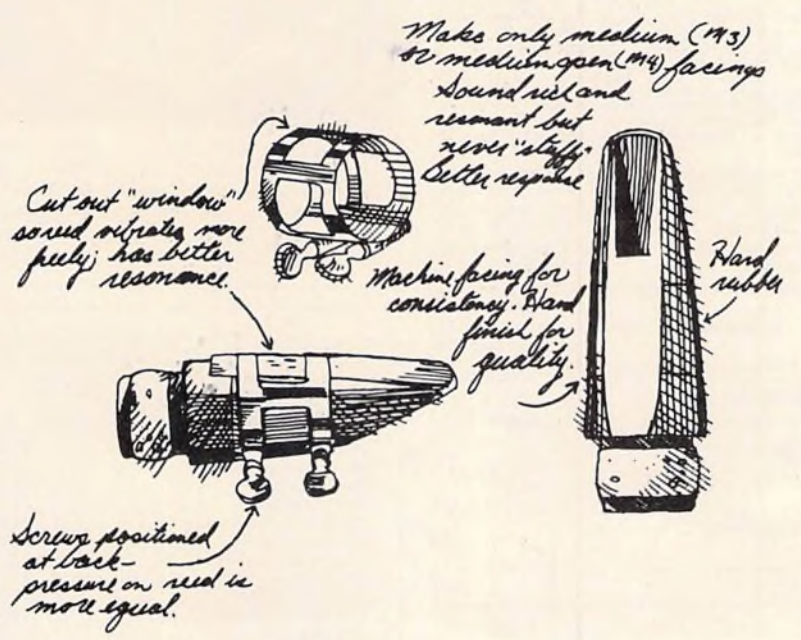 Make only medium (M3)
or medium open (M4) facings
Sound rich and
resonant but
never "stuffy"
Better response
Cut out "window"
so reed vibrates more
freely; has better
resonance.
Machine facing for
consistency. Hand
finish for
quality.
Hard
rubber
Screws positioned
at back-
pressure on reed is
more equal.